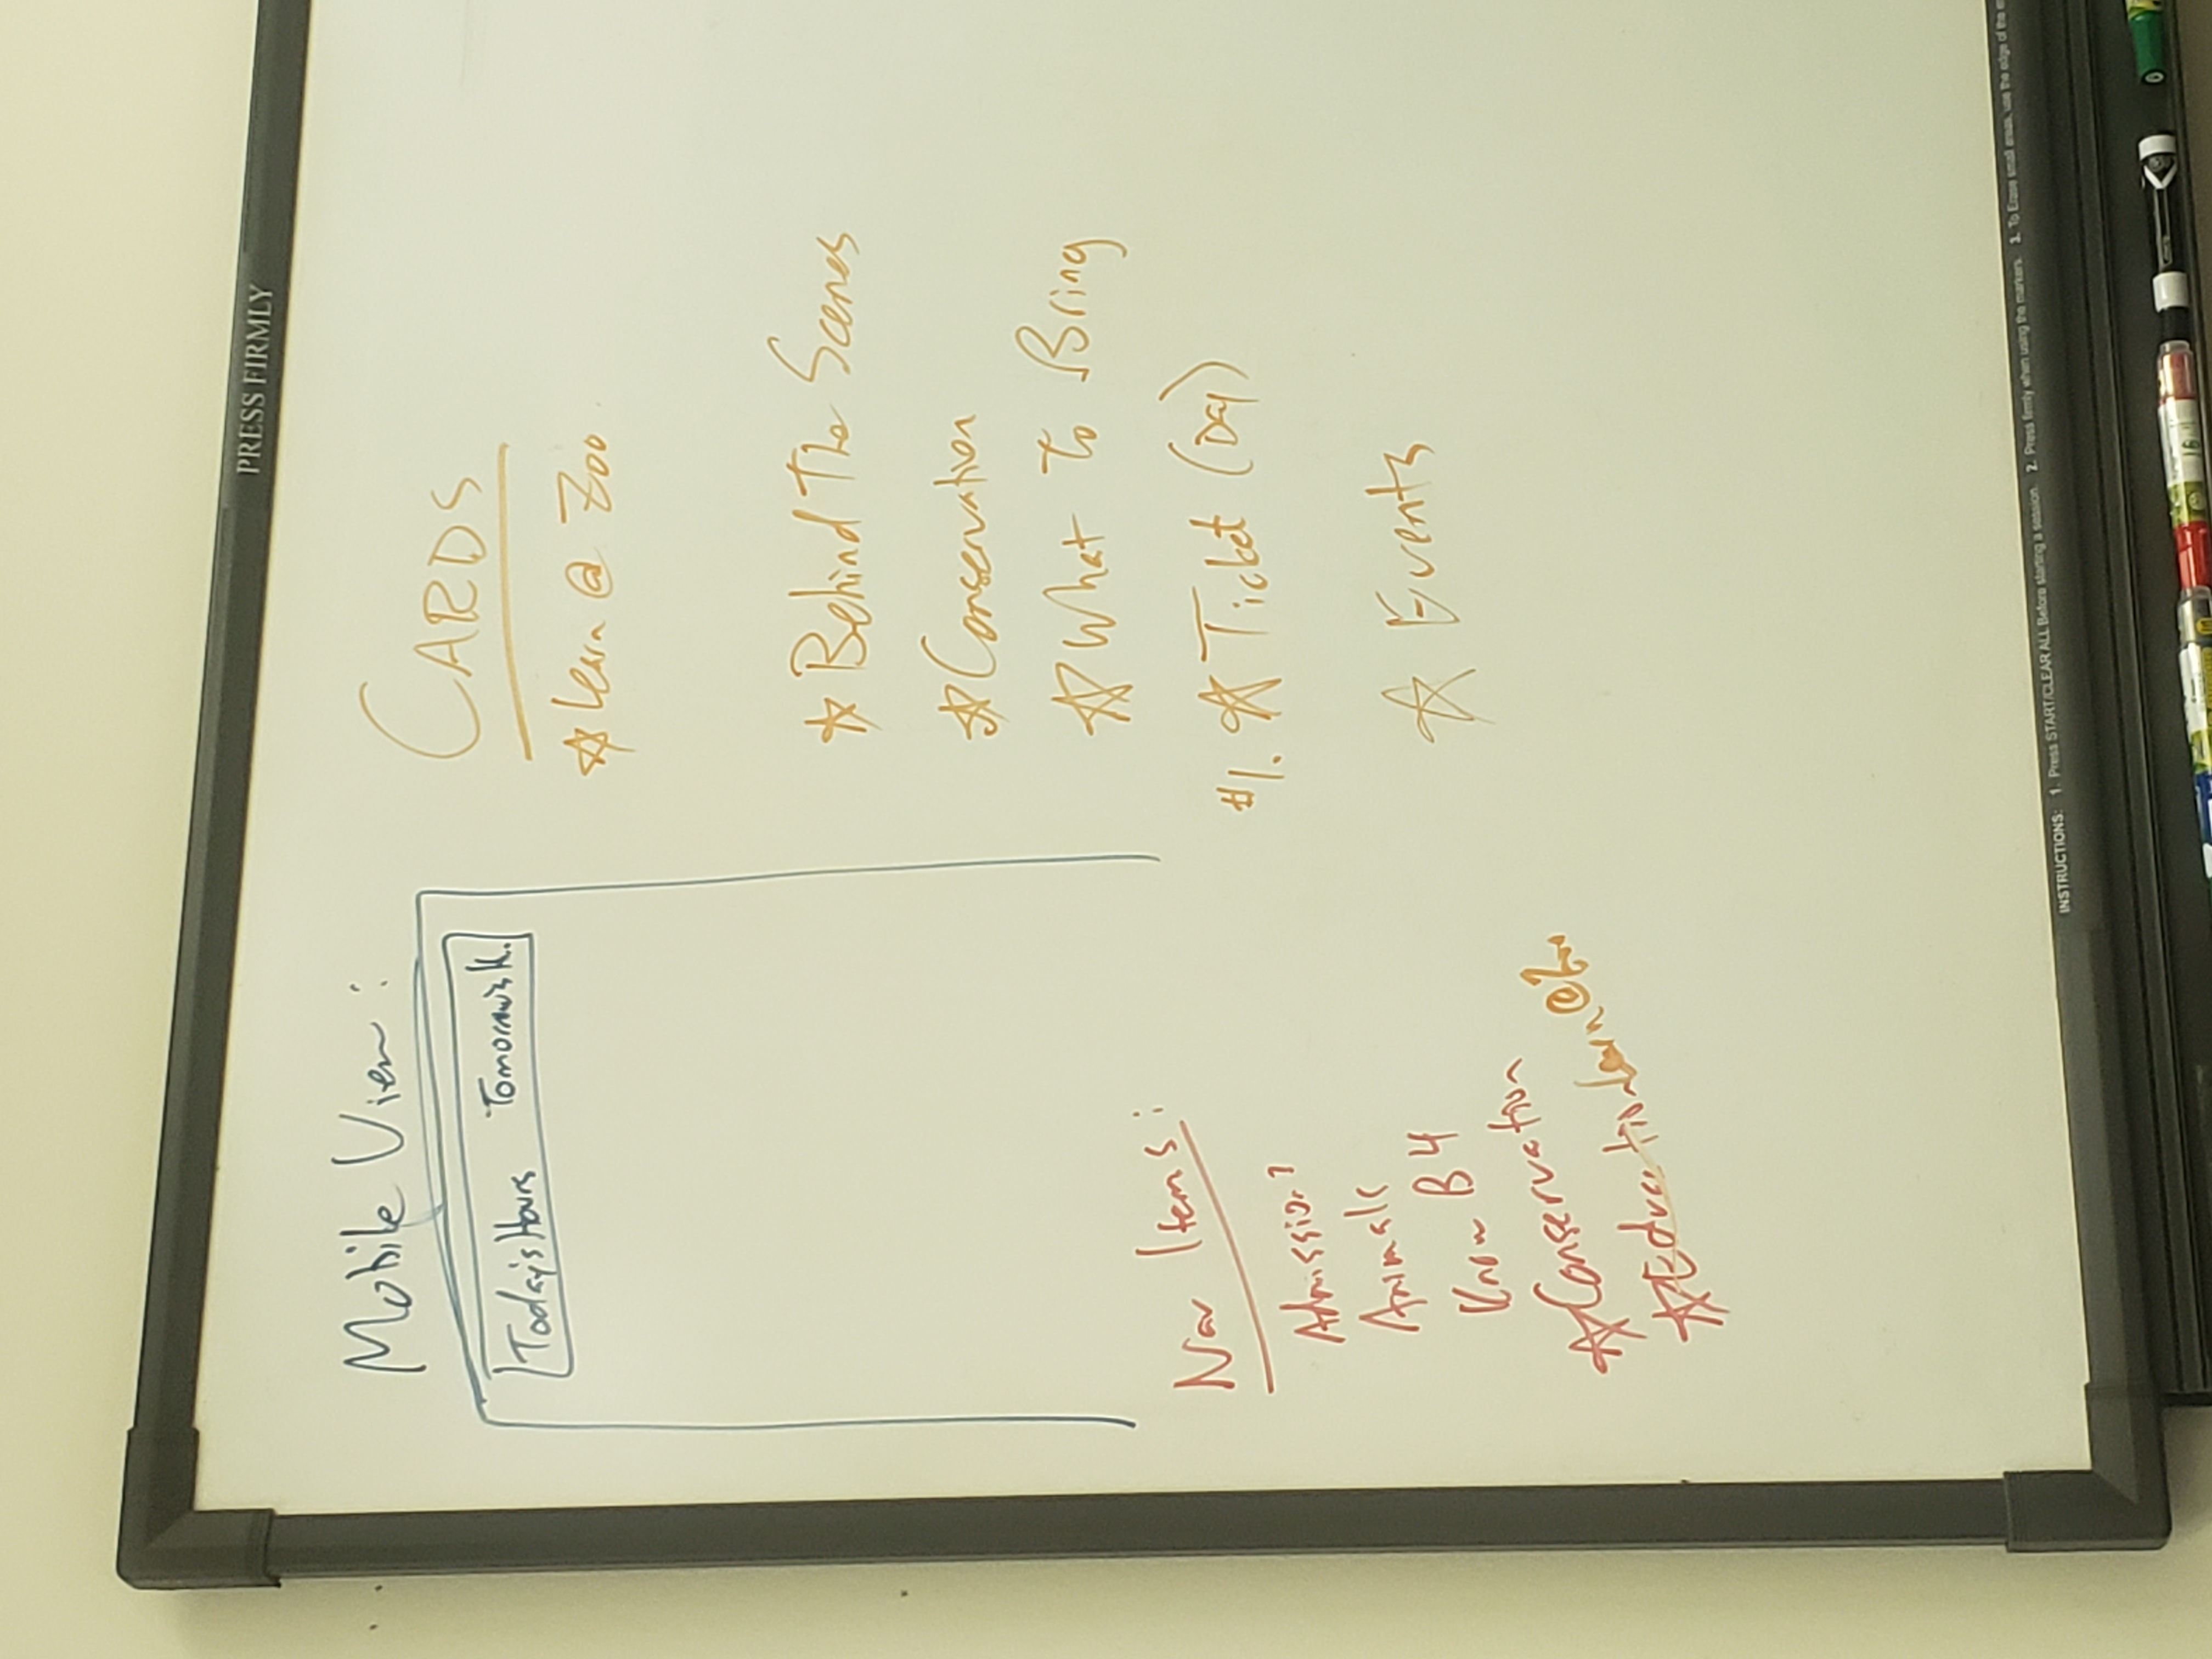 PRESS FIRMLY
Mobile View:
Today's Hours Tomorrow's H.
Nav Items:
Admissions
Animals
Know B4
☆ Conservation
☆ Education Learn @ Zoo
CARDS
☆ Learn @ Zoo
☆ Behind The Scenes
☆ Conservation
☆ What To Bring
#1. ☆ Ticket (Day)
☆ Events
INSTRUCTIONS: 1. Press START/CLEAR ALL Before starting a session. 2. Press firmly when using the markers. 3. To Erase small areas, use the edge of the